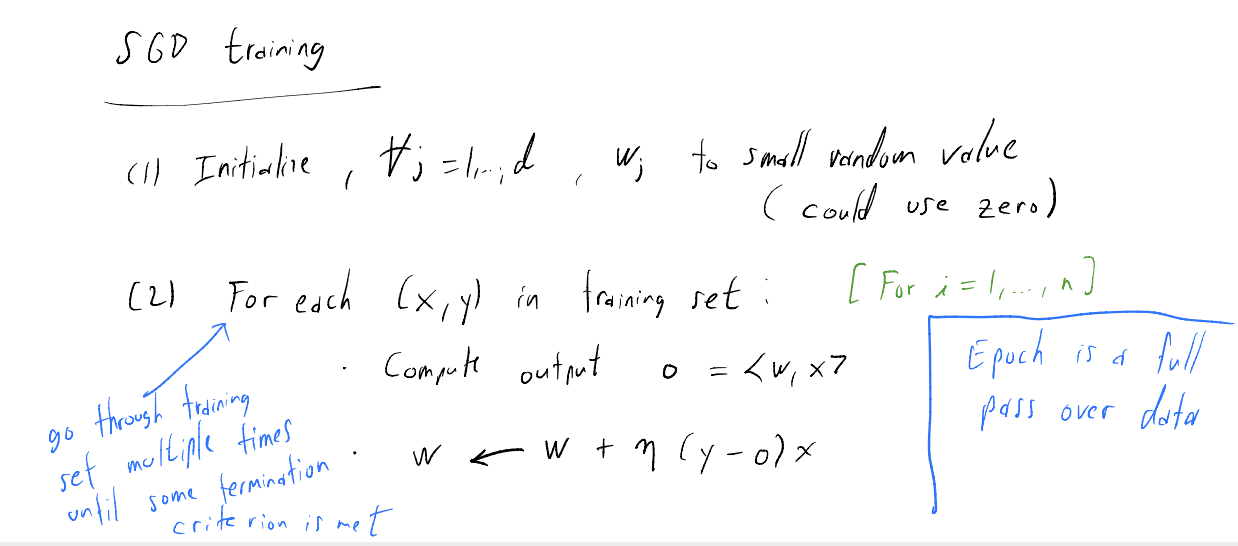 SGD training
(1) Initialize, ∀j=1,...,d, wj to small random value
(could use zero)
(2) For each (x,y) in training set: [For i=1,...,n]
· Compute output o = <w, x>
· w ← w + η (y-o) x
go through training
set multiple times
until some termination
criterion is met
Epoch is a full
pass over data